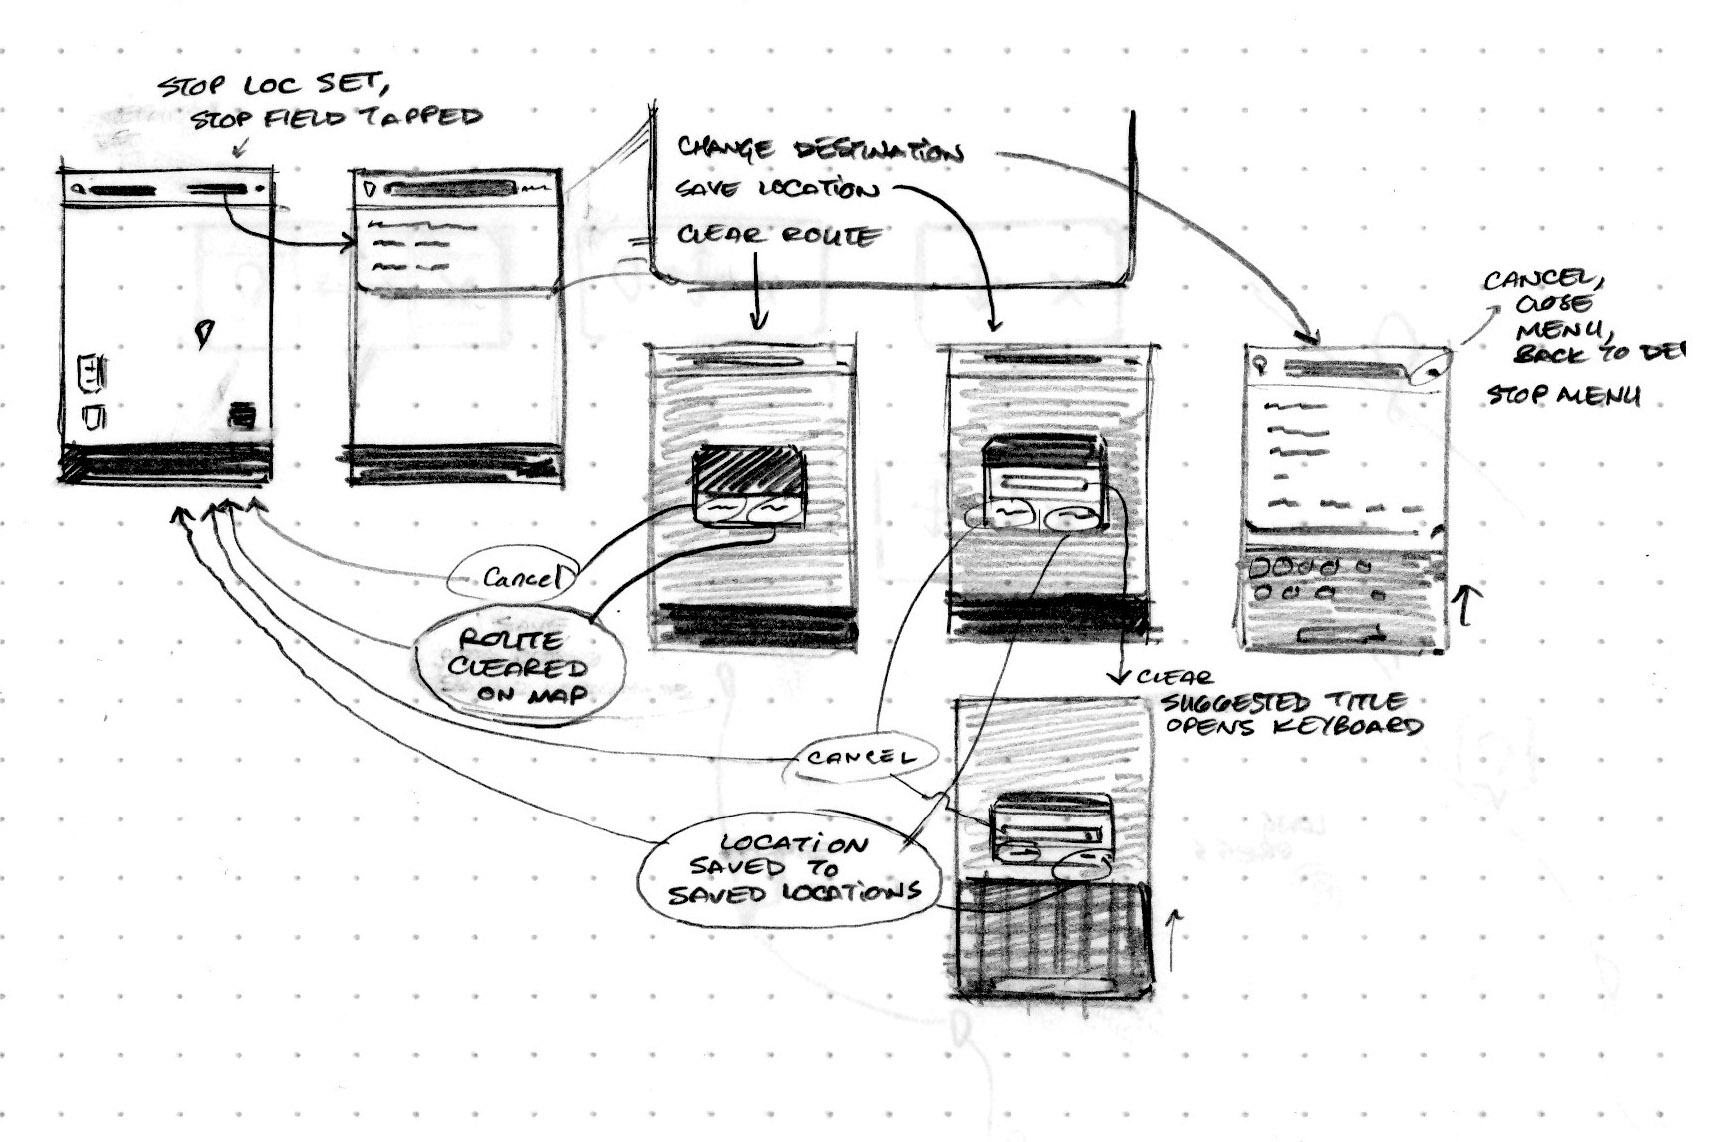 STOP LOC SET,
STOP FIELD TAPPED
CHANGE DESTINATION
SAVE LOCATION
CLEAR ROUTE
CANCEL,
CLOSE
MENU,
BACK TO
STOP MENU
Cancel
ROUTE
CLEARED
ON MAP
CLEAR
SUGGESTED TITLE
OPENS KEYBOARD
CANCEL
LOCATION
SAVED TO
SAVED LOCATIONS